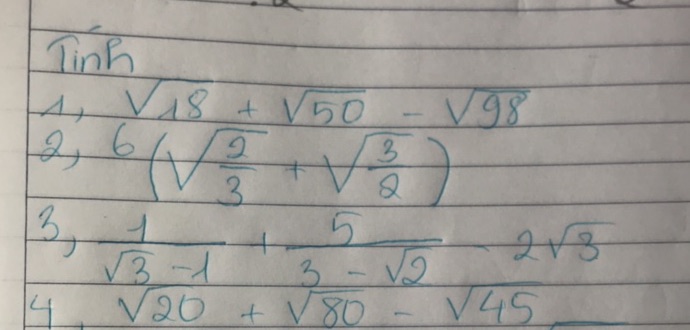 Tính
1, √18 + √50 - √98
2, 6(√(2/3) + √(3/2))
3, 1/(√3 - 1) + 5/(3 - √2) - 2√3
4, √20 + √80 - √45